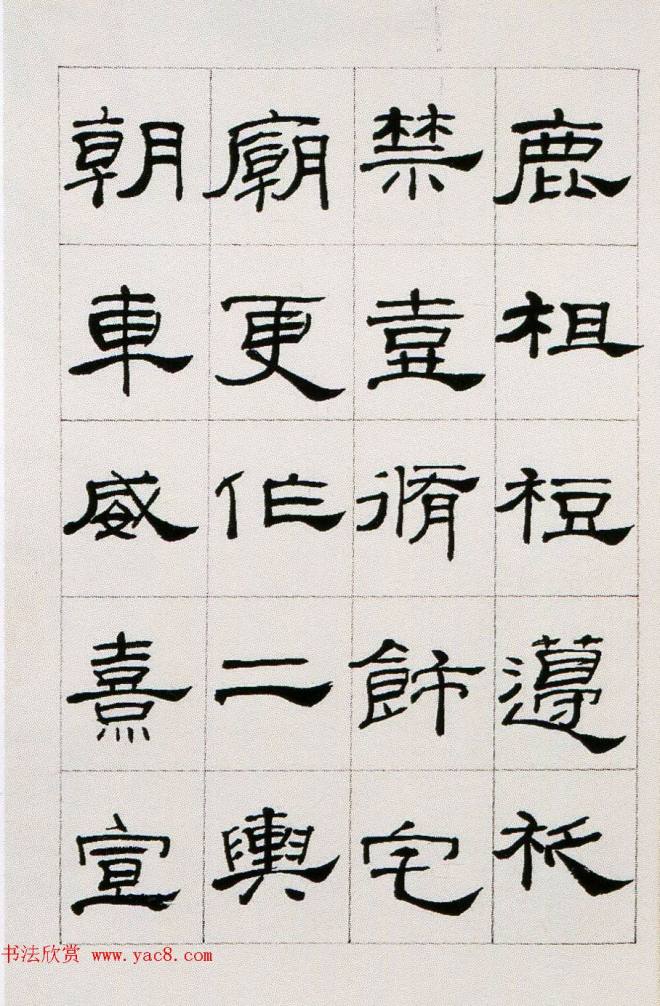 鹿柤梪籩柉
禁壺脩飾宅
廟更作二輿
朝車威熹宣
书法欣赏 www.yac8.com